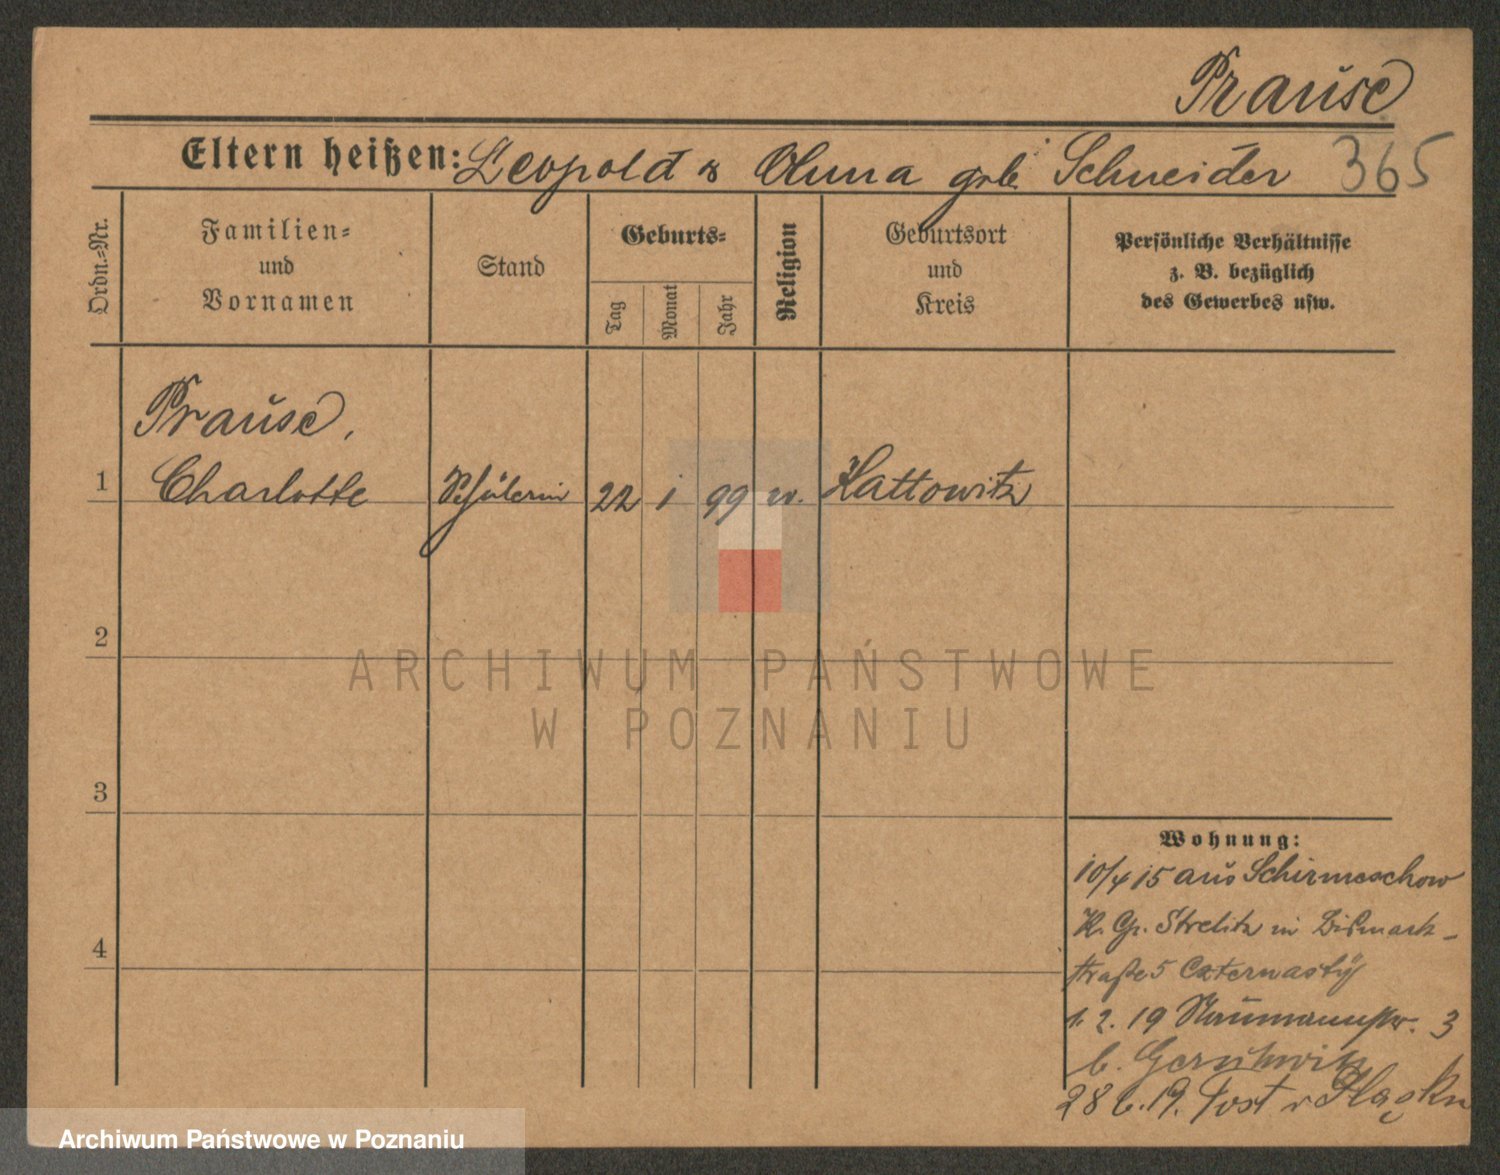 Prause
Eltern heißen: Leopold & geb. Schneider 365
Ordn.-Nr.
Familien-
und
Vornamen
Stand
Geburts-
Tag
Monat
Jahr
Religion
Geburtsort
und
Kreis
Persönliche Verhältnisse
z. B. bezüglich
des Gewerbes usw.
Prause,
1 Charlotte Schülerin 22 1 99 Kattowitz
2
ARCHIWUM PAŃSTWOWE
W POZNANIU
3
4
Wohnung:
10/4 15 aus Schirmeschow
Strelitz in Bismark-
straße 5
1. 2. 19 Naumannstr. 3
b.
28 6. 19. Post
Archiwum Państwowe w Poznaniu